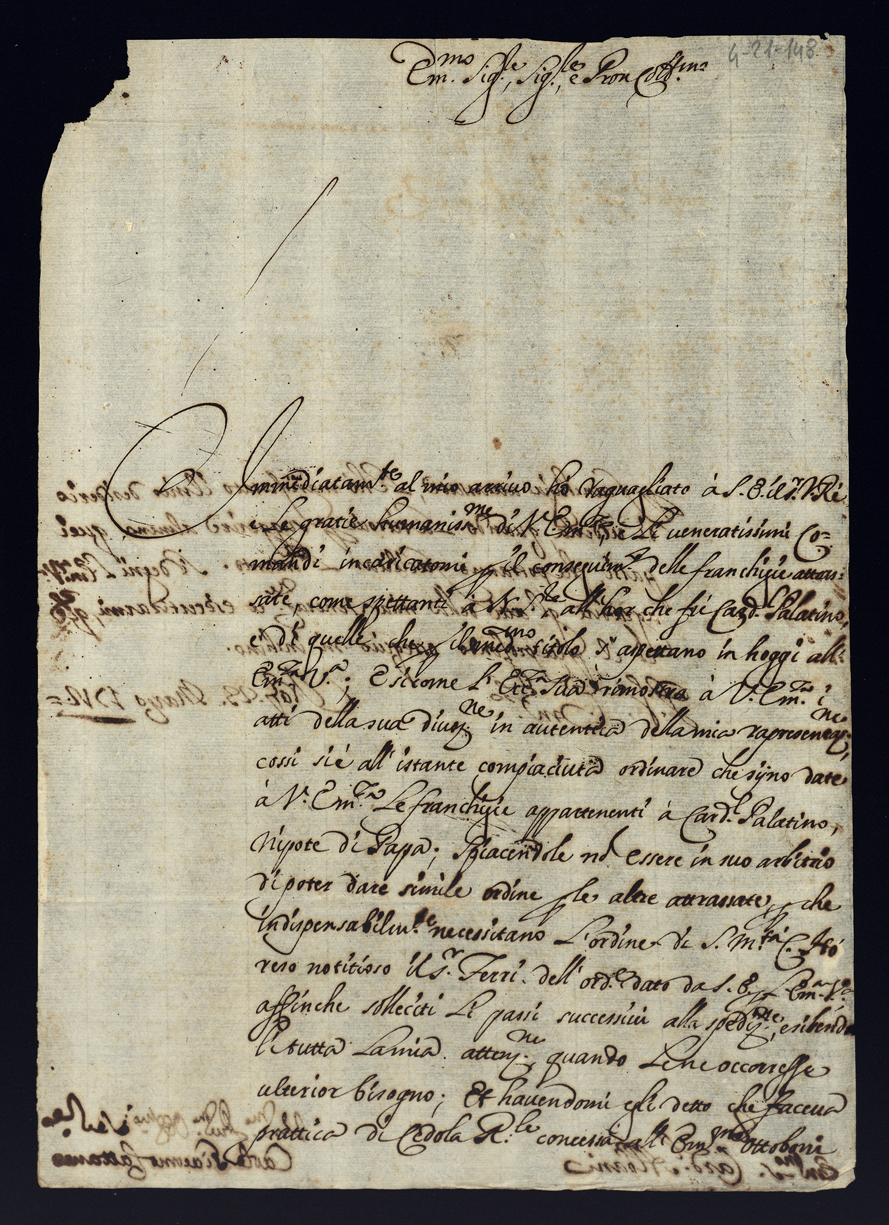 4-21-148
Em.mo Sig.re, Sig.re, e Pron Coll.mo
Immediatam.te al mio arrivo hò raguagliato à S. E. il s.r V. Rè
e le gratie humaniss.me di V. Em.za, e li veneratissimi Co=
mandi incaricatomi p il conseguim.to delle franchigie attras=
sate, come spettanti à V. Em.za all'hor che fù Card.l Palatino,
e di quelle che p il med.mo titolo s'aspettano in hoggi all'
Em.za V.ra; E sicome l'Ecc.za Sua rimostra à V. Em.za i
atti della sua divoz.ne in autentica della mia rapresentaz.ne,
cossi si é all'istante compiaciuta ordinare che sijno date
à V. Em.za Le franchigie appartenenti à Card.l Palatino,
Nipote di Papa; Spiacendole nō essere in suo arbitrio
di poter dare simile ordine p le altre attrassate, p che
indispensabilm.te necessitano L'ordine di S. M.tà C. Hò
reso notitioso il s.r Ferri dell'ord.e dato da S. E. p L'Em.za V.ra
affinche solleciti li passi successivi alla spediz.ne, esibendo
li tutta La mia attenz.ne, quando Le ne occorresse
ulterior bisogno; Et havendomi egli detto che faceva
prattica di Cedola R.le concessa all'Em.mo Ottoboni
Em.mo S. Card.